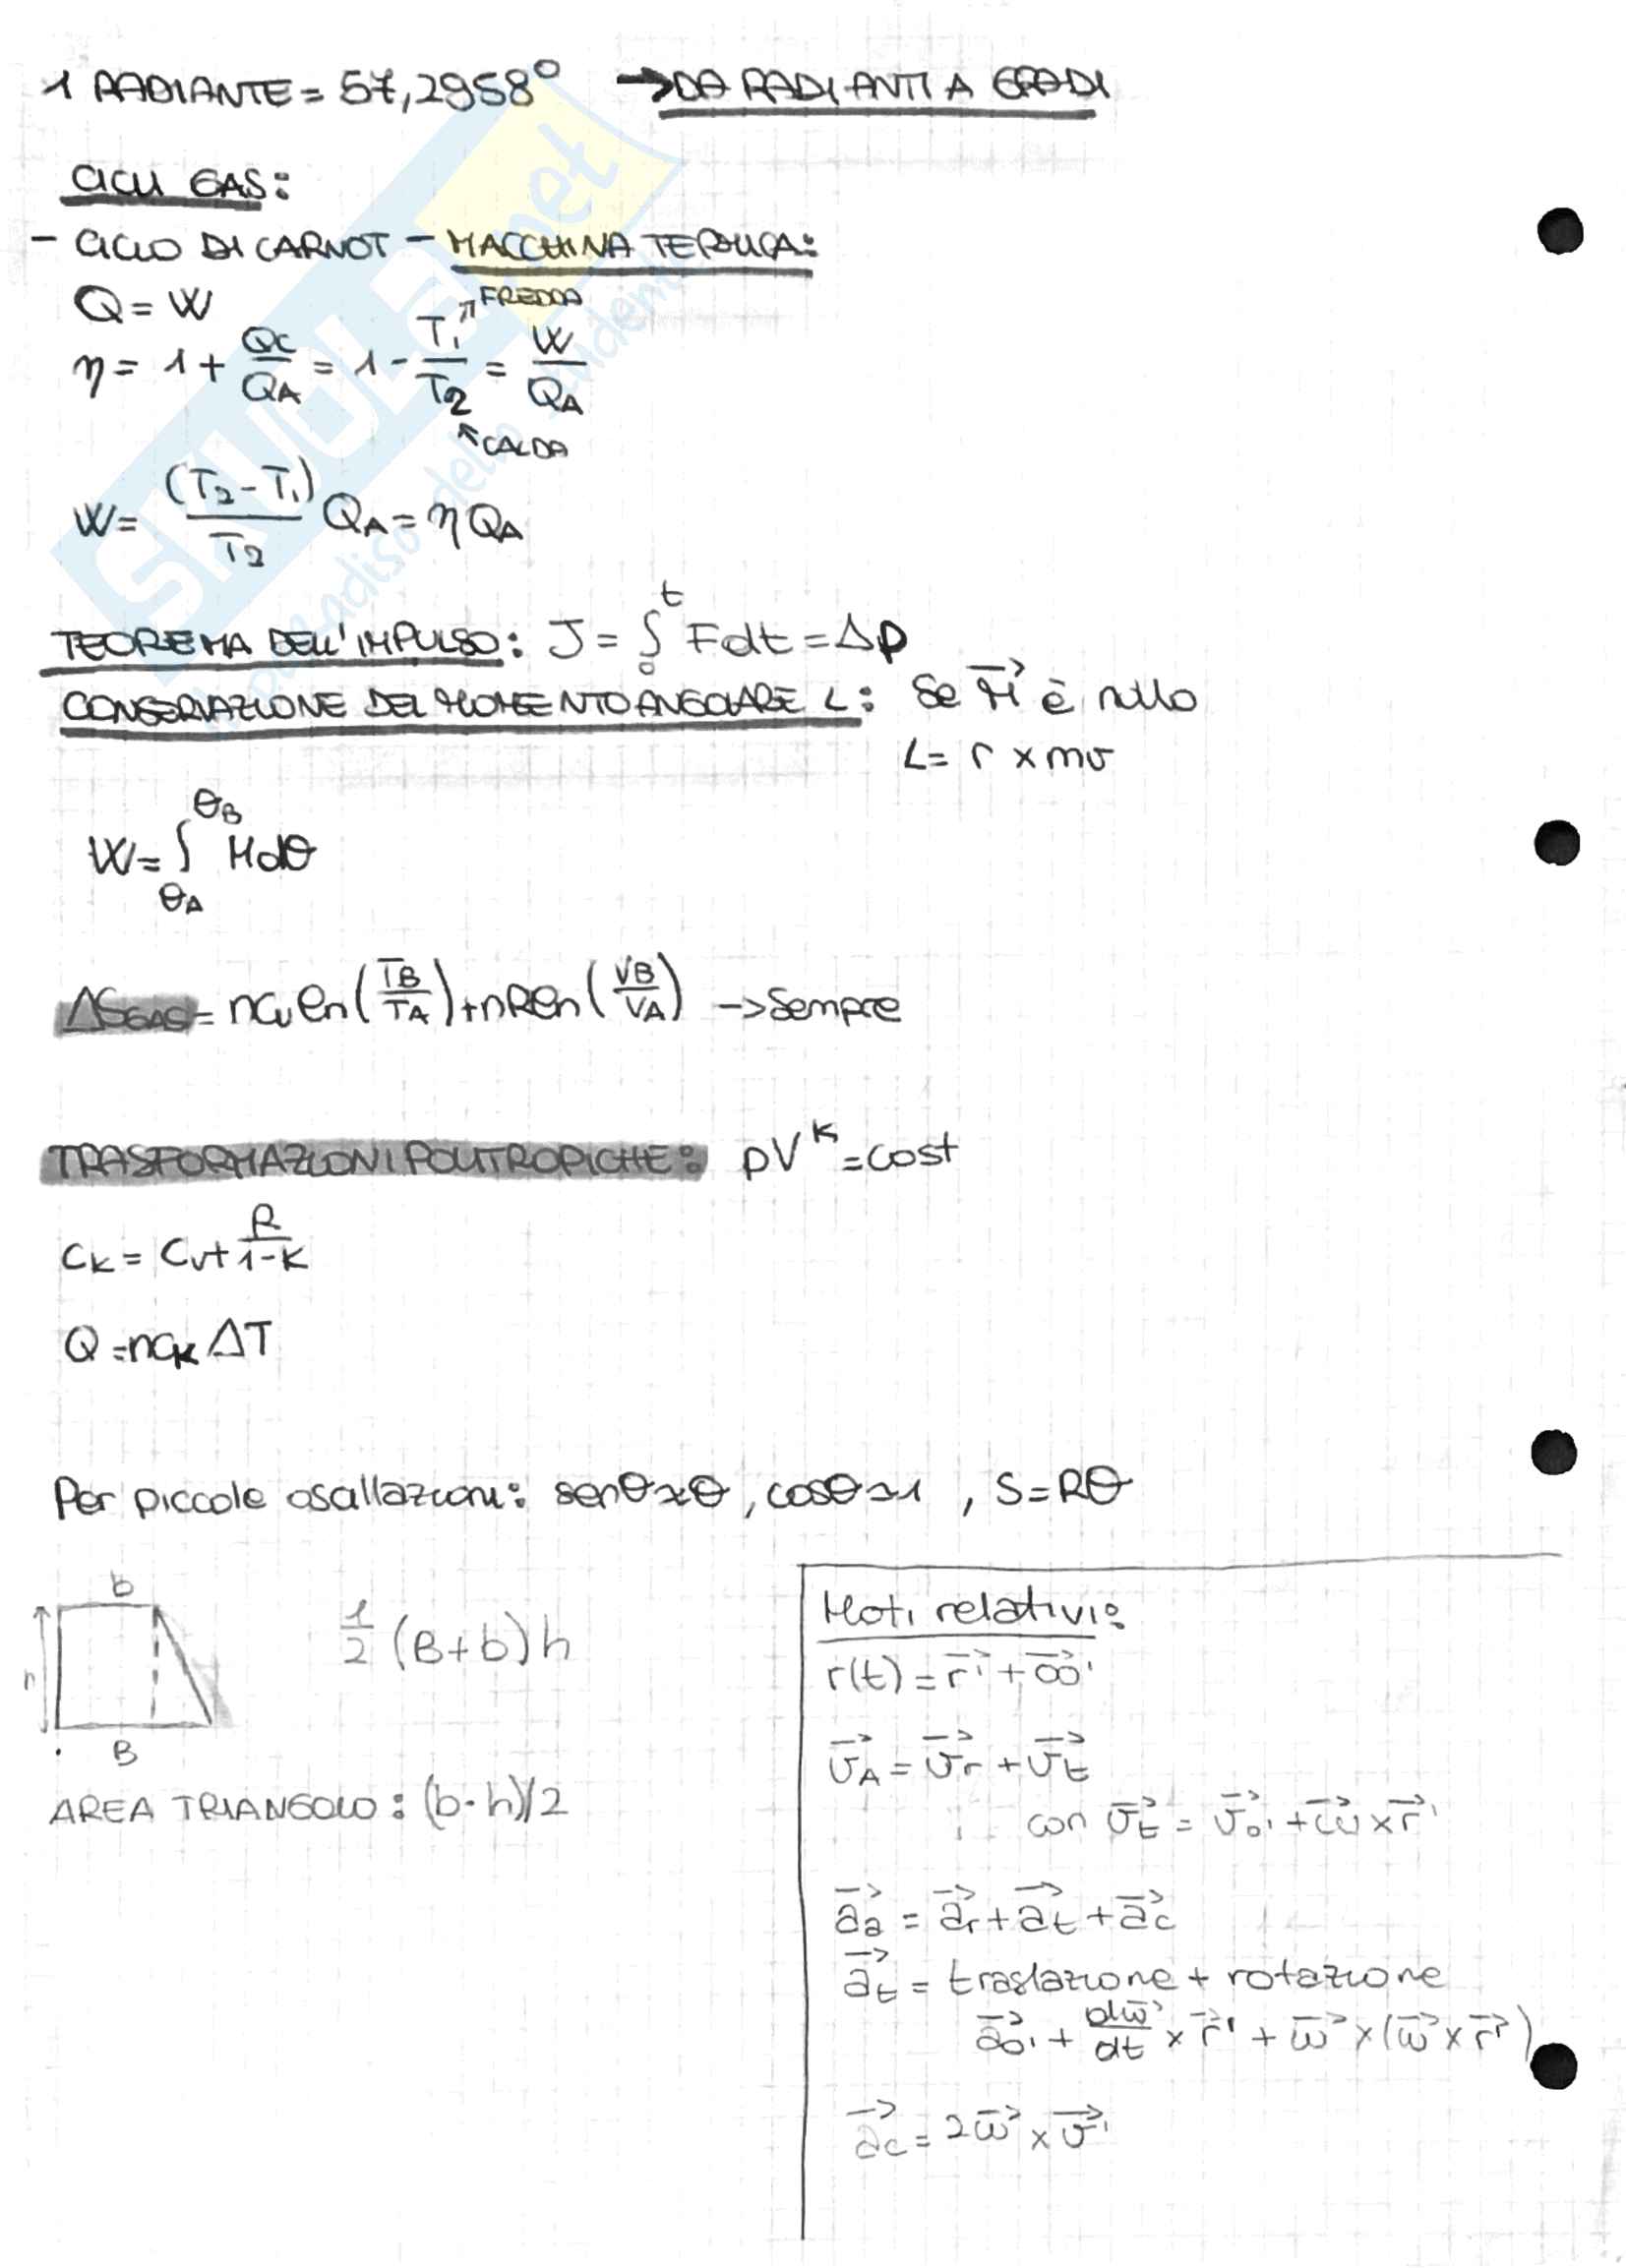 1 RADIANTE = 57,2958° → DA RADIANTI A GRADI
CICLI GAS:
- CICLO DI CARNOT - MACCHINA TERMICA:
Q = W
η = 1 + Qc/QA = 1 - T1/T2 = W/QA
↗ FREDDA
↖ CALDA
W = (T2 - T1)/T2 QA = η QA
TEOREMA DELL'IMPULSO: J = ∫₀ᵗ Fdt = Δp
CONSERVAZIONE DEL MOMENTO ANGOLARE L: Se M⃗ è nullo
L = r × mv
W = ∫ θA θB M dθ
ΔSGAS = ncv ln(TB/TA) + nR ln(VB/VA) → Sempre
TRASFORMAZIONI POLITROPICHE: pV^K = cost
cK = cv + R/(1-K)
Q = ncK ΔT
Per piccole oscillazioni: senθ ≈ θ, cosθ ≈ 1, S = Rθ
b
h
B
1/2 (B+b) h
AREA TRIANGOLO: (b·h)/2
Moti relativi:
r(t) = r⃗' + OO⃗'
v⃗A = v⃗r + v⃗t
con v⃗t = v⃗o' + ω⃗ × r⃗'
a⃗a = a⃗r + a⃗t + a⃗c
a⃗t = traslazione + rotazione
a⃗o' + dω⃗/dt × r⃗' + ω⃗ × (ω⃗ × r⃗')
a⃗c = 2ω⃗ × v⃗'
SKUOLA.net